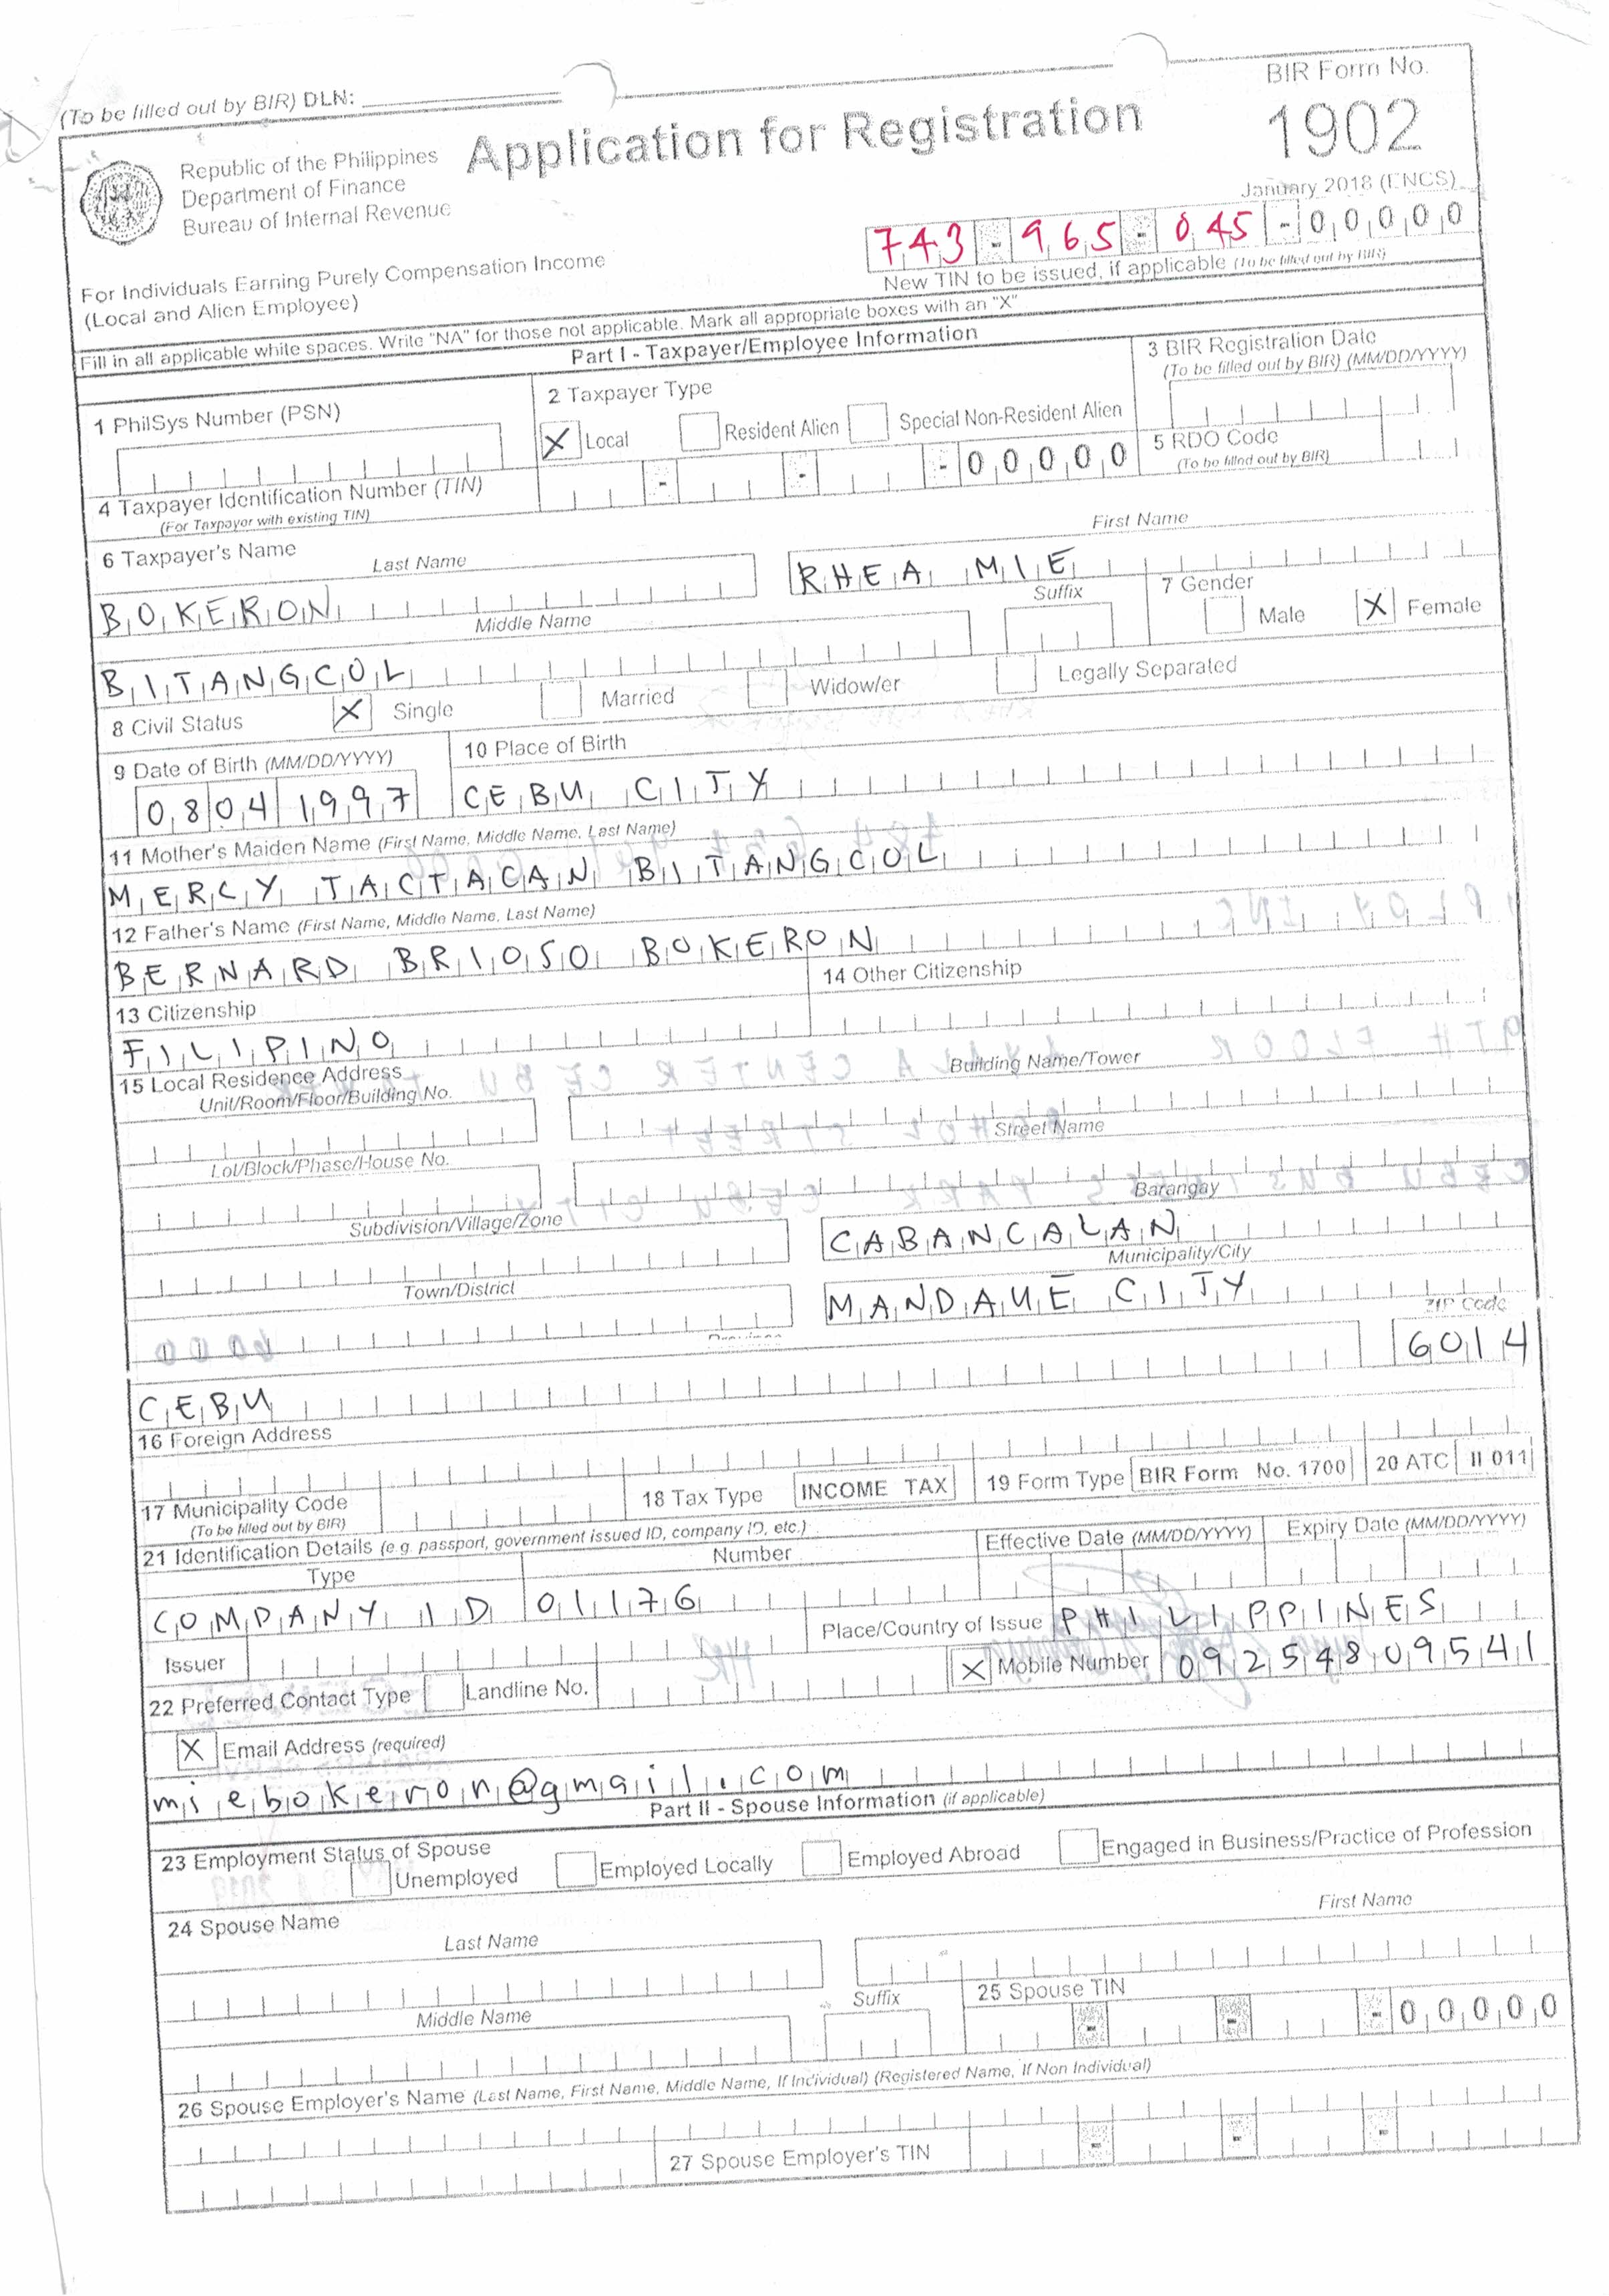 (To be filled out by BIR) DLN:
BIR Form No.
Republic of the Philippines
Department of Finance
Bureau of Internal Revenue
Application for Registration
1902
January 2018 (ENCS)
743 - 965 - 045 - 00000
New TIN to be issued, if applicable (To be filled out by BIR)
For Individuals Earning Purely Compensation Income
(Local and Alien Employee)
Fill in all applicable white spaces. Write "NA" for those not applicable. Mark all appropriate boxes with an "X"
Part I - Taxpayer/Employee Information
1 PhilSys Number (PSN)
2 Taxpayer Type
X Local Resident Alien Special Non-Resident Alien
3 BIR Registration Date
(To be filled out by BIR) (MM/DD/YYYY)
4 Taxpayer Identification Number (TIN)
(For Taxpayer with existing TIN)
- - - 00000
5 RDO Code
(To be filled out by BIR)
6 Taxpayer's Name
Last Name First Name
BOKERON RHEA MIE
Middle Name Suffix
BITANGCOL
7 Gender
Male X Female
8 Civil Status X Single Married Widow/er Legally Separated
9 Date of Birth (MM/DD/YYYY)
08041997
10 Place of Birth
CEBU CITY
11 Mother's Maiden Name (First Name, Middle Name, Last Name)
MERCY TACTACAN BITANGCOL
12 Father's Name (First Name, Middle Name, Last Name)
BERNARD BRIOSO BOKERON
13 Citizenship
FILIPINO
14 Other Citizenship
15 Local Residence Address
Unit/Room/Floor/Building No. Building Name/Tower
Lot/Block/Phase/House No. Street Name
Subdivision/Village/Zone Barangay
CABANCALAN
Town/District Municipality/City
MANDAUE CITY
ZIP Code
CEBU 6014
16 Foreign Address
17 Municipality Code
(To be filled out by BIR)
18 Tax Type INCOME TAX
19 Form Type BIR Form No. 1700
20 ATC II 011
21 Identification Details (e.g. passport, government issued ID, company ID, etc.)
Type Number Effective Date (MM/DD/YYYY) Expiry Date (MM/DD/YYYY)
COMPANY ID 01176
Issuer
Place/Country of Issue PHILIPPINES
22 Preferred Contact Type Landline No. X Mobile Number 09254809541
X Email Address (required)
miebokeron@gmail.com
Part II - Spouse Information (if applicable)
23 Employment Status of Spouse
Unemployed Employed Locally Employed Abroad Engaged in Business/Practice of Profession
24 Spouse Name
Last Name First Name
Middle Name Suffix
25 Spouse TIN
- - - 00000
26 Spouse Employer's Name (Last Name, First Name, Middle Name, If Individual) (Registered Name, If Non Individual)
27 Spouse Employer's TIN
- - -